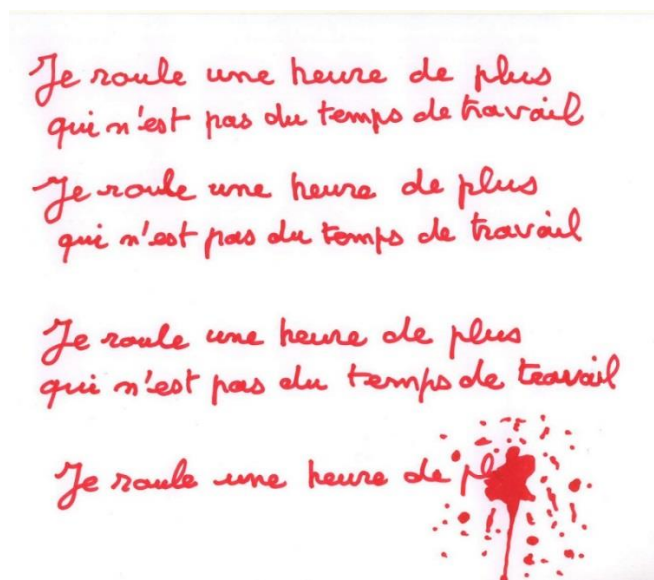 Je roule une heure de plus
qui n'est pas du temps de travail
Je roule une heure de plus
qui n'est pas du temps de travail
Je roule une heure de plus
qui n'est pas du temps de travail
Je roule une heure de pl